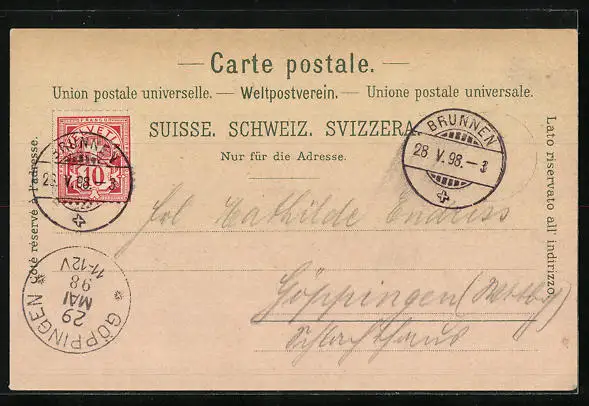 — Carte postale. —
Union postale universelle. — Weltpostverein. — Unione postale universale.
SUISSE. SCHWEIZ. SVIZZERA.
Nur für die Adresse.
Côté réservé à l'adresse.
Lato riservato all' indirizzo
FRANCO
HELVETIA
10
BRUNNEN
28 V.98.-3
BRUNNEN
28 V.98.-3
Frl Mathilde Endriss
Göppingen
Schlachthaus
GÖPPINGEN
29
MAI
98
11-12V